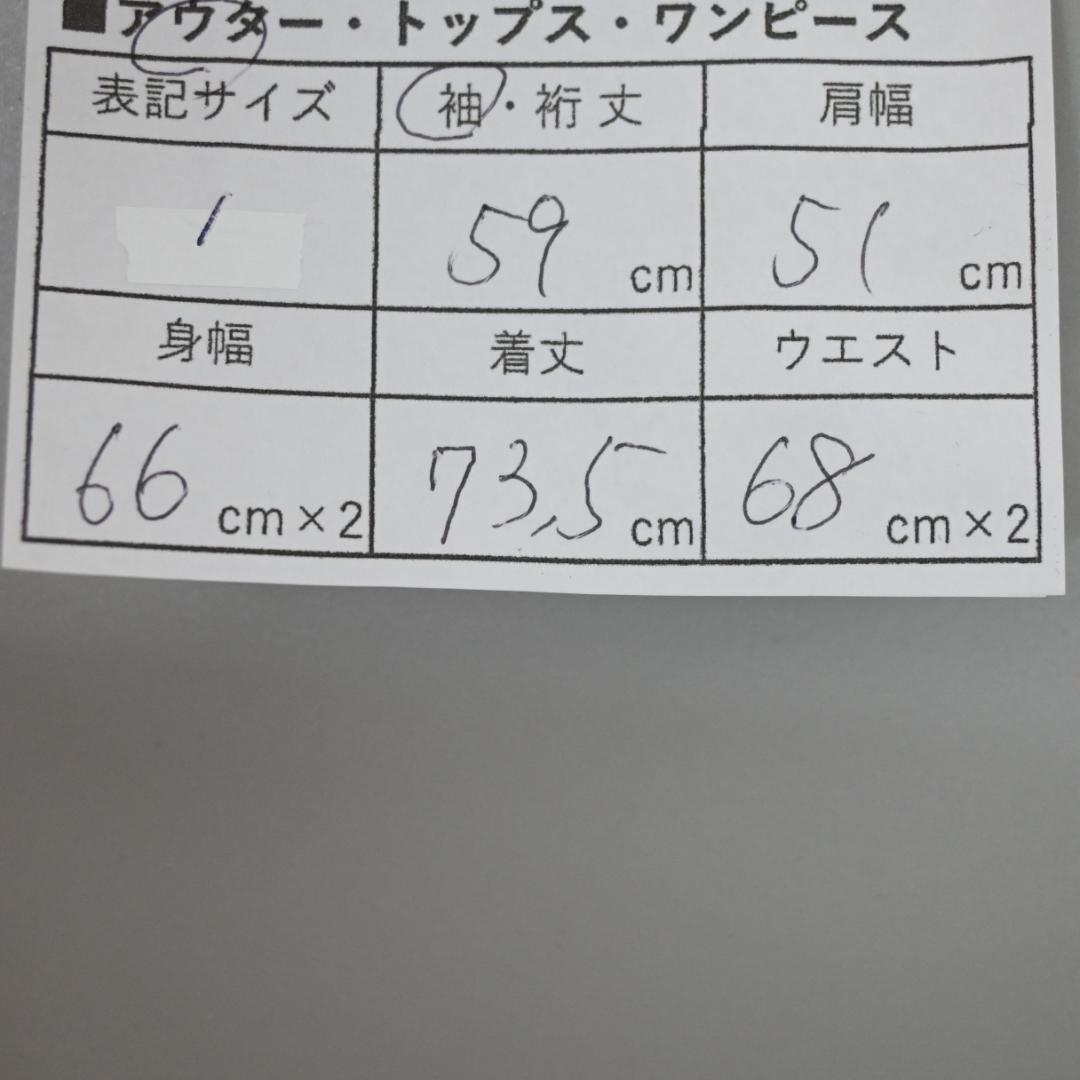 ■アウター・トップス・ワンピース
表記サイズ 袖・裄丈 肩幅
1 59 cm 51 cm
身幅 着丈 ウエスト
66 cm×2 73,5 cm 68 cm×2